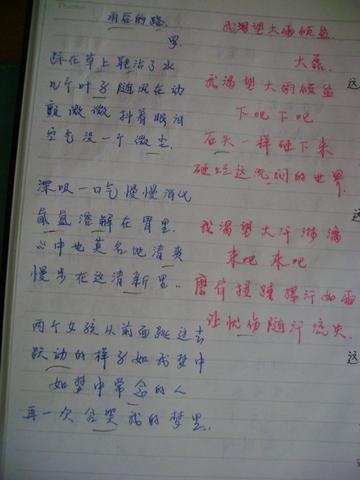 雨后的路
男
踩在草上鞋沾了水
几个叶子随风在动
颤微微 抖着眼泪
空气没一个微尘
深吸一口气 慢慢消化
氧气溶解在胃里
心中也莫名地清爽
慢步在这清新里..
两个女孩从前面跳过去
跃动的样子如我梦中
如梦中常念的人
再一次 我的梦里
我渴望大雨倾盆
大磊
我渴望大雨倾盆
下吧 下吧
石头一样砸下来
砸烂这沉闷的世界
我渴望大汗淋漓
来吧 来吧
摩肩接踵 挥汗如雨
让忧伤随汗流失
这
这
这